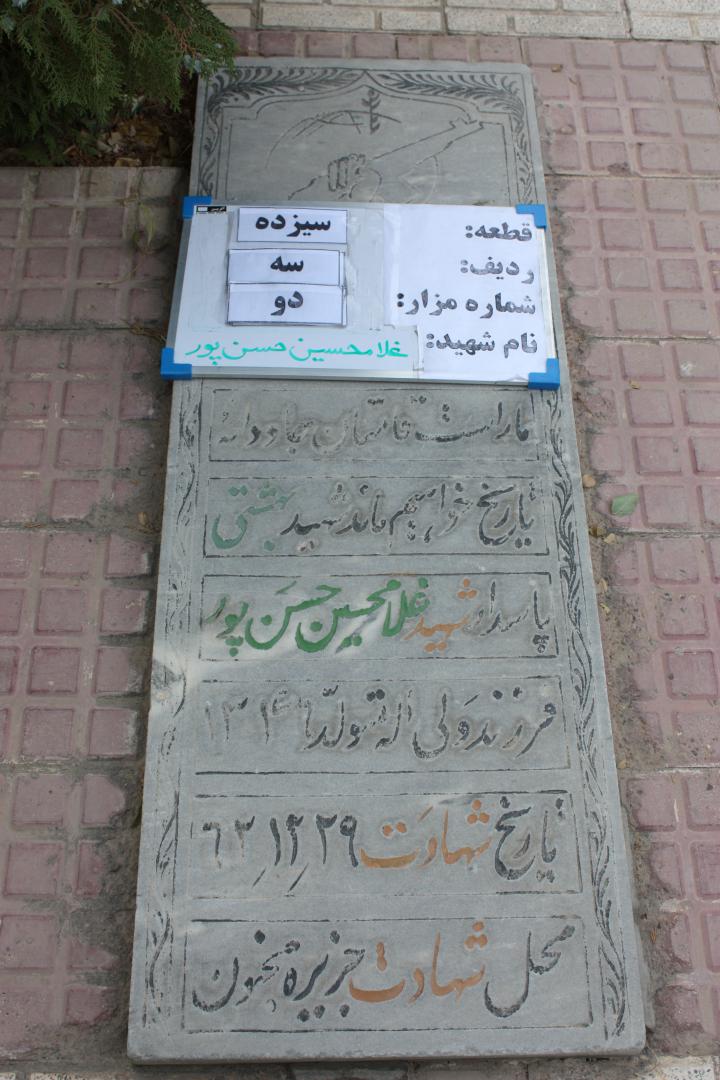 قطعه: سیزده
ردیف: سه
شماره مزار: دو
نام شهید: غلامحسین حسن پور
ماراست قامتان جاودانه
تاریخ خواهیم ماند شهید بهشتی
پاسدار شهید غلامحسین حسن پور
فرزند ولی اله تولد ۱۳۴۶
تاریخ شهادت ۶۳٫۱۲٫۲۹
محل شهادت جزیره مجنون